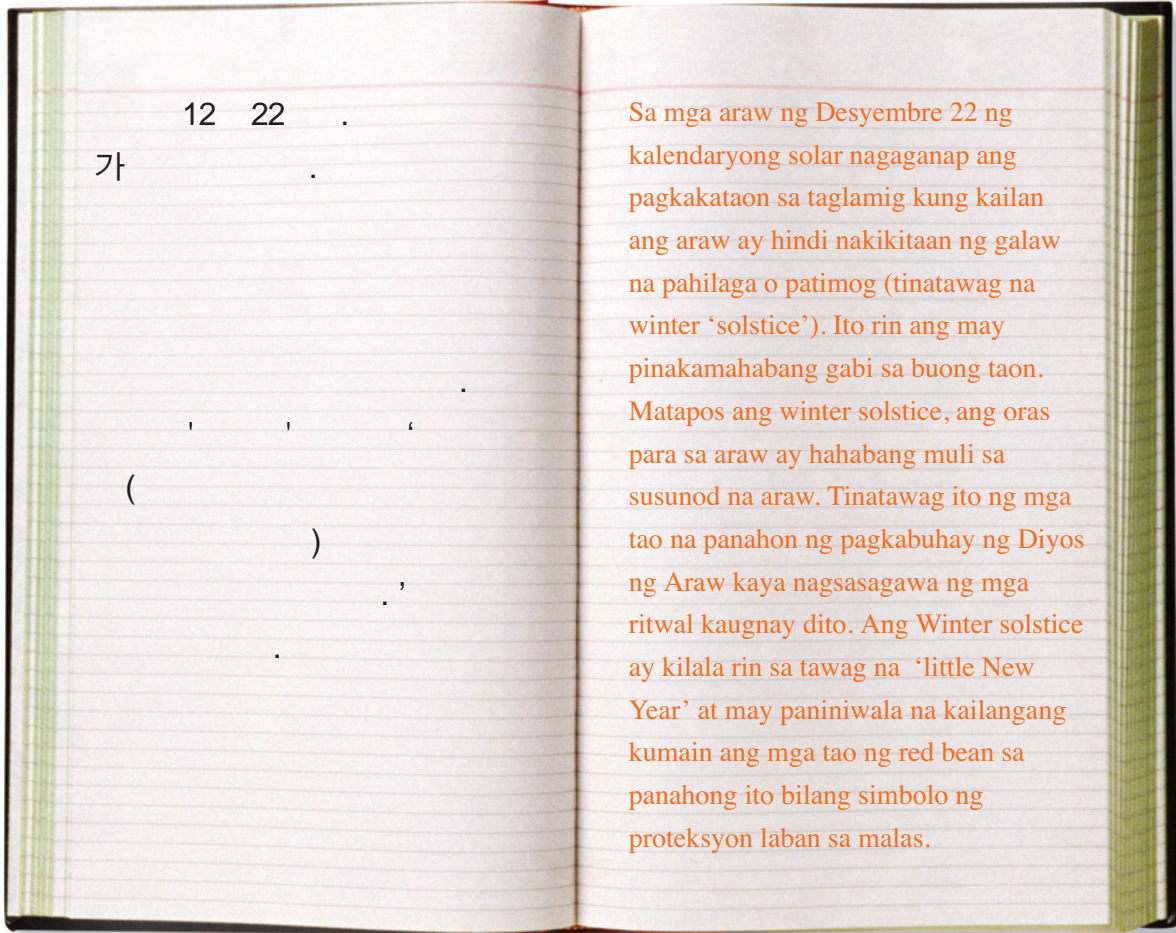 12 22 .
가 .
.
' ' ‘
(
)
. ’
.
Sa mga araw ng Desyembre 22 ng
kalendaryong solar nagaganap ang
pagkakataon sa taglamig kung kailan
ang araw ay hindi nakikitaan ng galaw
na pahilaga o patimog (tinatawag na
winter ‘solstice’). Ito rin ang may
pinakamahabang gabi sa buong taon.
Matapos ang winter solstice, ang oras
para sa araw ay hahabang muli sa
susunod na araw. Tinatawag ito ng mga
tao na panahon ng pagkabuhay ng Diyos
ng Araw kaya nagsasagawa ng mga
ritwal kaugnay dito. Ang Winter solstice
ay kilala rin sa tawag na ‘little New
Year’ at may paniniwala na kailangang
kumain ang mga tao ng red bean sa
panahong ito bilang simbolo ng
proteksyon laban sa malas.